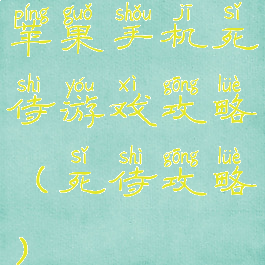 píng guǒ shǒu jī sǐ
苹果手机死
shì yóu xì gōng lüè
侍游戏攻略
sǐ shì gōng lüè
(死侍攻略
)